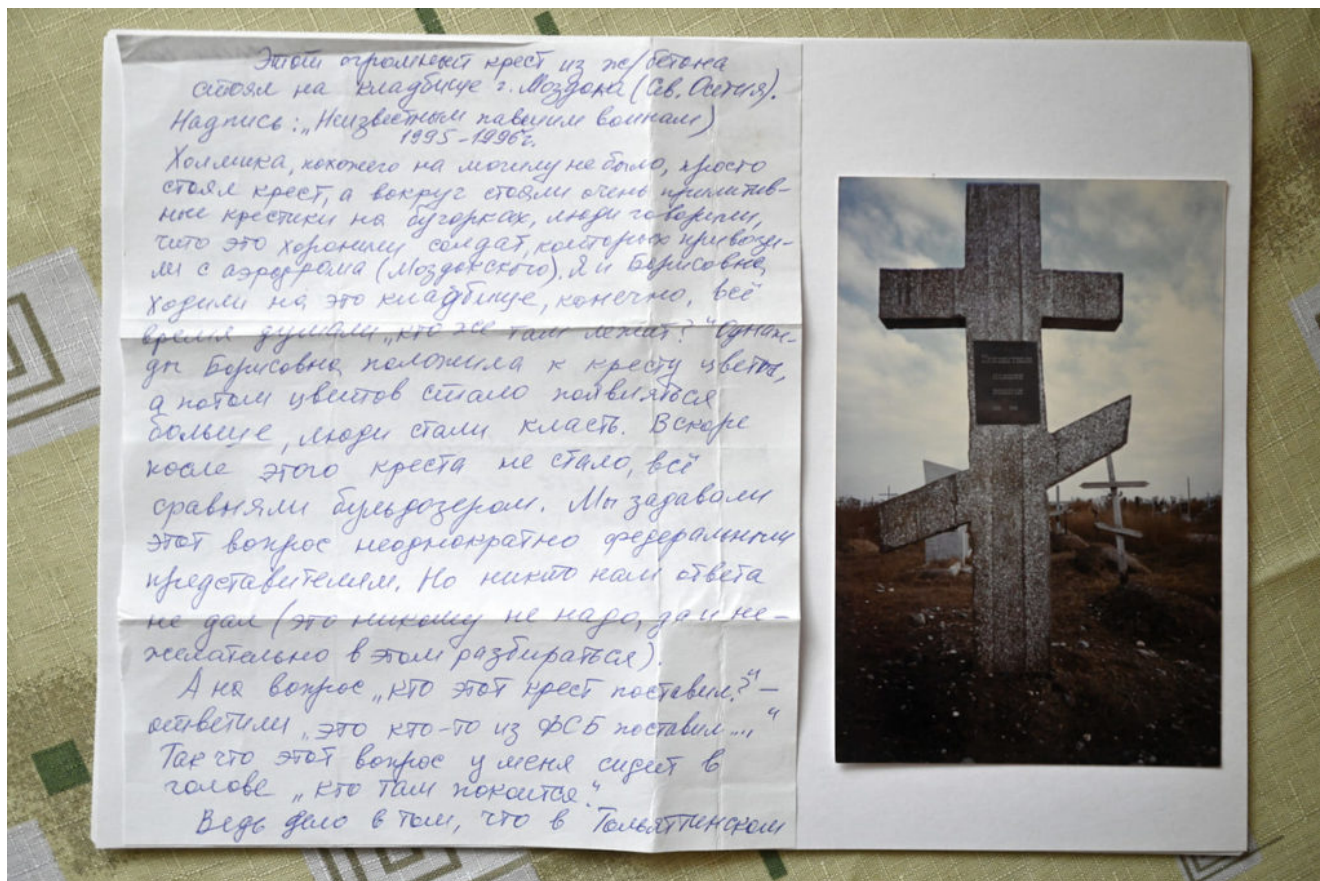 Этот огромный крест из ж/бетона
стоял на кладбище г. Моздока (Сев. Осетия).
Надпись: „Неизвестным павшим воинам)
1995-1996г.
Холмика, похожего на могилу не было, просто
стоял крест, а вокруг стояли очень примитив-
ные крестики на бугорках, люди говорили,
что это хоронили солдат, которых привози-
ли с аэродрома (Моздокского). Я и Борисовна
ходили на это кладбище, конечно, всё
время думали „кто же там лежит?" Однаж-
ды Борисовна положила к кресту цветы,
а потом цветов стало появляться
больше, люди стали класть. Вскоре
после этого креста не стало, всё
сравняли бульдозером. Мы задавали
этот вопрос неоднократно федеральным
представителям. Но никто нам ответа
не дал (это никому не надо, да и не-
желательно в этом разбираться).
А на вопрос „кто этот крест поставил?" –
ответили „это кто-то из ФСБ поставил..."
Так что этот вопрос у меня сидит в
голове „кто там покоится."
Ведь дело в том, что в Тольяттинском